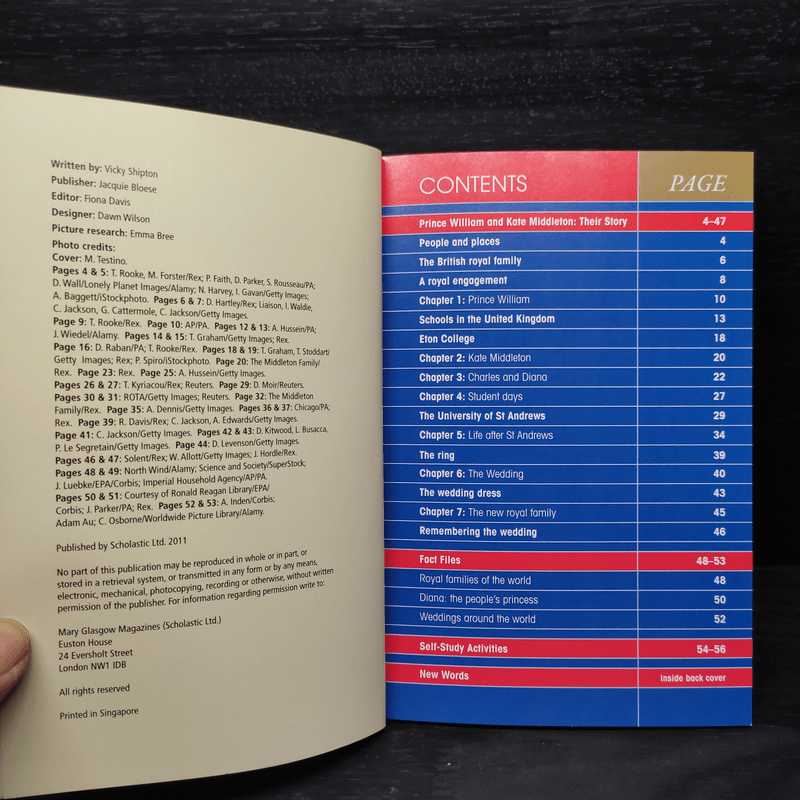 Written by: Vicky Shipton
Publisher: Jacquie Bloese
Editor: Fiona Davis
Designer: Dawn Wilson
Picture research: Emma Bree
Photo credits:
Cover: M. Testino.
Pages 4 & 5: T. Rooke, M. Forster/Rex; P. Faith, D. Parker, S. Rousseau/PA;
D. Wall/Lonely Planet Images/Alamy; N. Harvey, I. Gavan/Getty Images;
A. Baggett/iStockphoto. Pages 6 & 7: D. Hartley/Rex; Liaison, I. Waldie,
C. Jackson, G. Cattermole, C. Jackson/Getty Images.
Page 9: T. Rooke/Rex. Page 10: AP/PA. Pages 12 & 13: A. Hussein/PA;
J. Wiedel/Alamy. Pages 14 & 15: T. Graham/Getty Images; Rex.
Page 16: D. Raban/PA; T. Rooke/Rex. Pages 18 & 19: T. Graham, T. Stoddart/
Getty Images; Rex; P. Spiro/iStockphoto. Page 20: The Middleton Family/
Rex. Page 23: Rex. Page 25: A. Hussein/Getty Images.
Pages 26 & 27: T. Kyriacou/Rex; Reuters. Page 29: D. Moir/Reuters.
Pages 30 & 31: ROTA/Getty Images; Reuters. Page 32: The Middleton
Family/Rex. Page 35: A. Dennis/Getty Images. Pages 36 & 37: Chicago/PA;
Rex. Page 39: R. Davis/Rex; C. Jackson, A. Edwards/Getty Images.
Page 41: C. Jackson/Getty Images. Pages 42 & 43: D. Kitwood, L. Busacca,
P. Le Segretain/Getty Images. Page 44: D. Levenson/Getty Images.
Pages 46 & 47: Solent/Rex; W. Allott/Getty Images; J. Hordle/Rex.
Pages 48 & 49: North Wind/Alamy; Science and Society/SuperStock;
J. Luebke/EPA/Corbis; Imperial Household Agency/AP/PA.
Pages 50 & 51: Courtesy of Ronald Reagan Library/EPA/
Corbis; J. Parker/PA; Rex. Pages 52 & 53: A. Inden/Corbis;
Adam Au; C. Osborne/Worldwide Picture Library/Alamy.
Published by Scholastic Ltd. 2011
No part of this publication may be reproduced in whole or in part, or
stored in a retrieval system, or transmitted in any form or by any means,
electronic, mechanical, photocopying, recording or otherwise, without written
permission of the publisher. For information regarding permission write to:
Mary Glasgow Magazines (Scholastic Ltd.)
Euston House
24 Eversholt Street
London NW1 1DB
All rights reserved
Printed in Singapore
CONTENTS PAGE
Prince William and Kate Middleton: Their Story 4–47
People and places 4
The British royal family 6
A royal engagement 8
Chapter 1: Prince William 10
Schools in the United Kingdom 13
Eton College 18
Chapter 2: Kate Middleton 20
Chapter 3: Charles and Diana 22
Chapter 4: Student days 27
The University of St Andrews 29
Chapter 5: Life after St Andrews 34
The ring 39
Chapter 6: The Wedding 40
The wedding dress 43
Chapter 7: The new royal family 45
Remembering the wedding 46
Fact Files 48–53
Royal families of the world 48
Diana: the people's princess 50
Weddings around the world 52
Self-Study Activities 54–56
New Words inside back cover